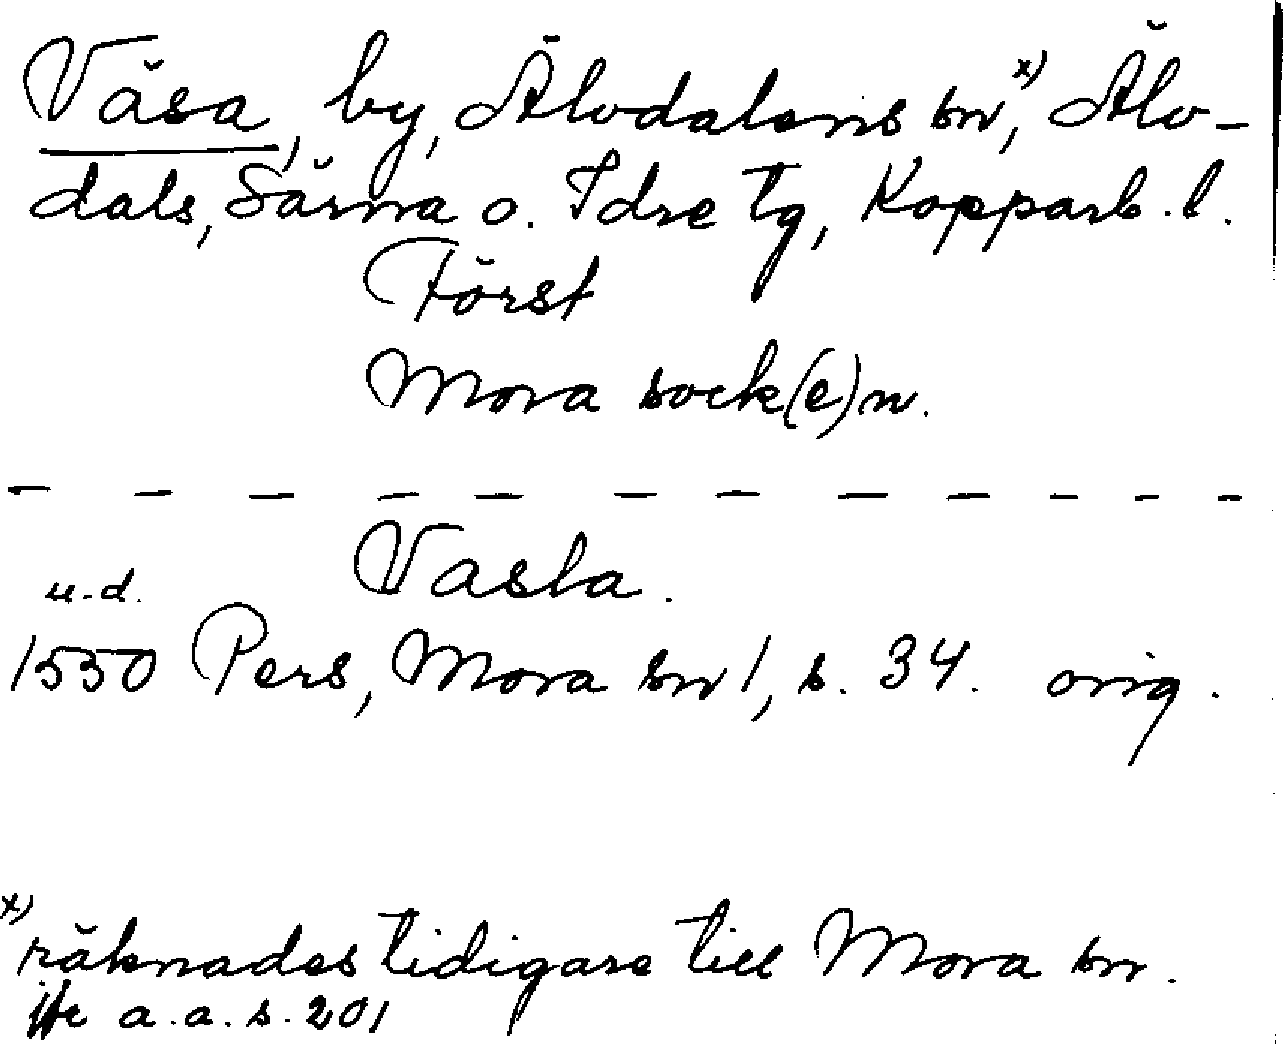 Väsa, by, Älvdalens sn,x) Älv-
dals, Särna o. Idre tg, Kopparb. l.
Först
Mora sock(e)n.
— — — — — — — — — — — —
Vasla.
u.d.
1550 Pers, Mora sn 1, s. 34. orig.
x) räknades tidigare till Mora sn.
jfr a.a. s. 201